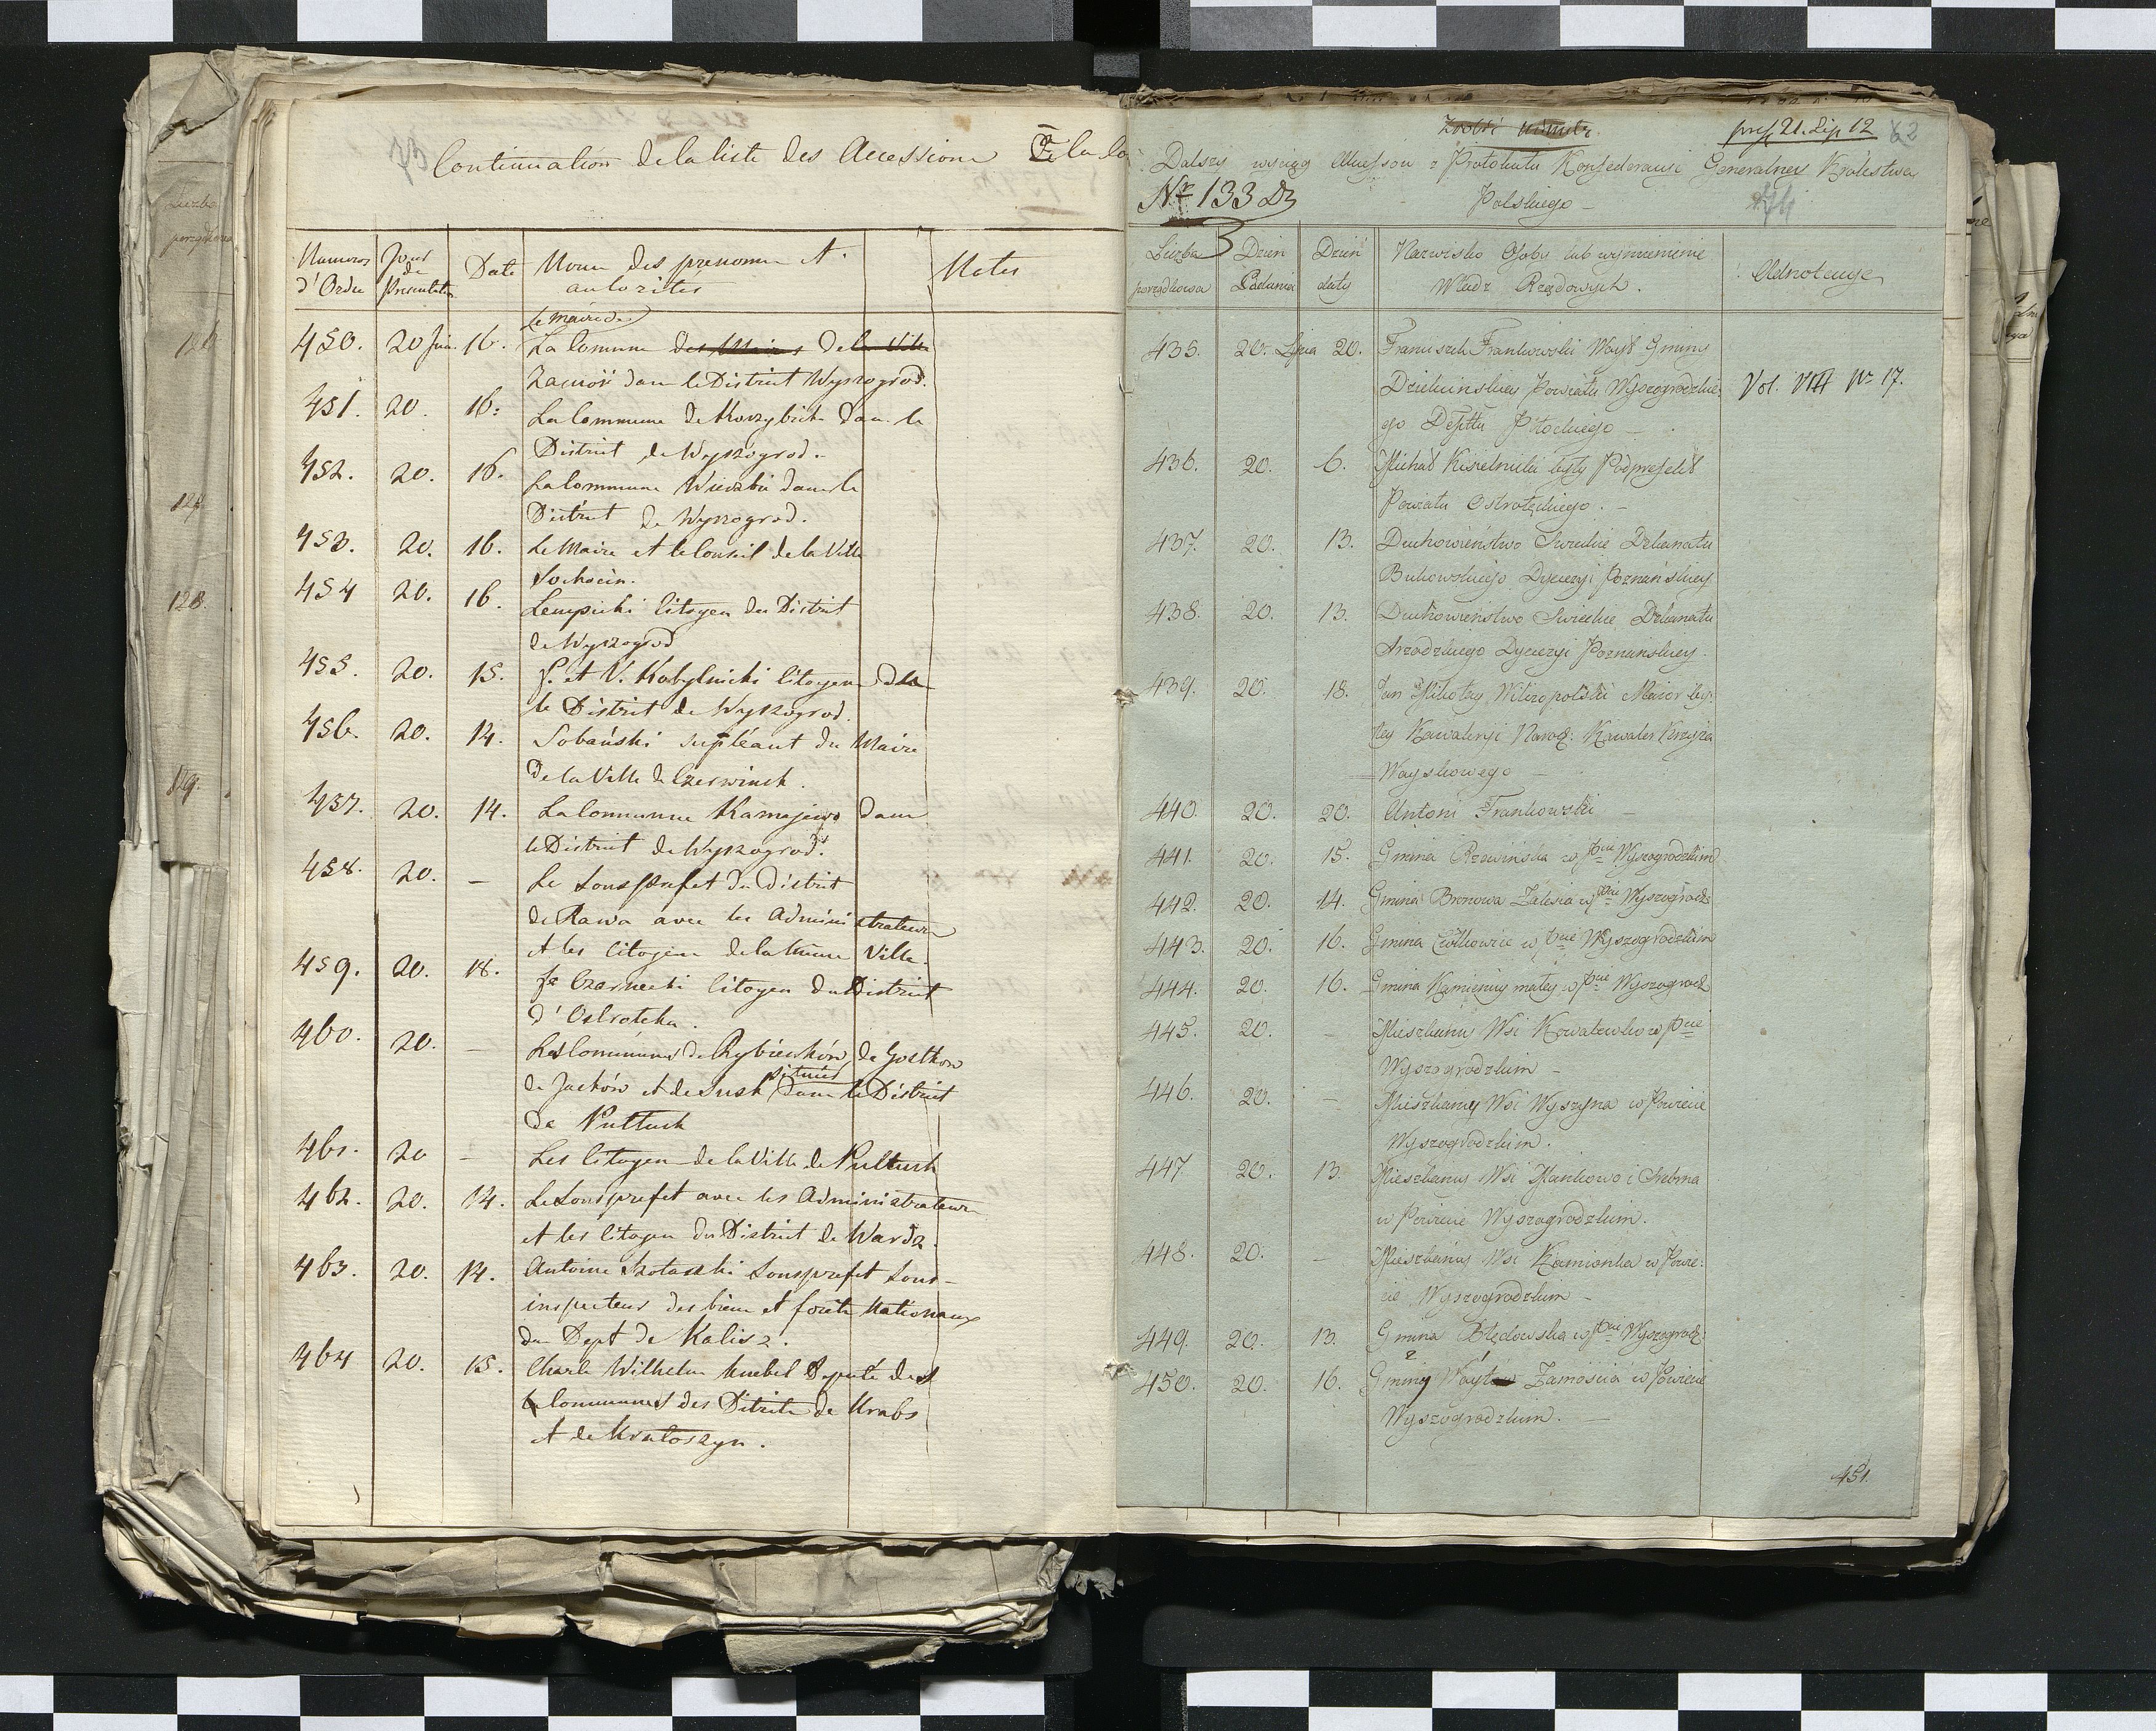 Continuation de la liste des Accessions
Numeros d'Ordre
Jour de Presentation
Date
Noms des prenoms et autorités
Notes
le maire de
450. 20 Juil. 16. La Comune des Maires de la Ville
Zamość dans le District Wyszogrod.
451. 20. 16. La Commune de dans le
District de Wyszogrod.
452. 20. 16. La Commune dans le
District de Wyszogrod.
453. 20. 16. Le Maire et le Conseil de la Ville
Sochocin.
454 20. 16. Lempicki Citoyen du District
de Wyszogrod
455. 20. 15. J. et V. Kobylnicki Citoyens dans
le District de Wyszogrod.
456. 20. 14. Sobański supléant du Maire
de la Ville de Czerwinsk.
457. 20. 14. La Commune dans
le District de Wyszogrod.
458. 20. — Le Sousprefet du District
de Rawa avec les Administrateurs
et les Citoyens de la même Ville.
459. 20. 18. Czarnecki Citoyen du District
d'Ostrolenka.
460. 20. — Les Communes de Rybieńków, de Gostkow
de Jacków et de Susk situées dans le District
de Pultusk
461. 20 — Les Citoyens de la Ville de Pultusk
462. 20. 14. Le Sousprefet avec les Administrateurs
et les Citoyens du District de Warda.
463. 20. 14. Antoine Sousprefet Sous-
inspecteur des biens et forêts Nationaux
du Dept de Kalisz.
464 20. 15. Charle Wilhelm Knebel Deputé des
Communes des Districts de
et de Krotoszyn.
pres. 21. Lip. 12 62
Dalszy wyciąg Akcessów z Protokułu Konfederacyi Generalney Królestwa
Nr 133 Polskiego —
3
Liczba porządkowa
Dzień Podania
Dzień daty
Nazwisko Osoby lub wymienienie Władz Rządowych.
Adnotacye
435. 20. Lipca 20. Franciszek Frankowski Woyt Gminy
Dziekinskiey Powiatu Wyszogrodzkie-
go Depttu Płockiego —
Vol. VIII Nr 17.
436. 20. 6. Michał Kisielnicki były Podprefekt
Powiatu Ostrołęckiego. —
437. 20. 13. Duchowieństwo Swieckie Dekanatu
Bukowskiego Dyecezyi Poznańskiey.
438. 20. 13. Duchowieństwo Swieckie Dekanatu
Srzodzkiego Dyecezyi Poznanskiey.
439. 20. 18. Jan Mikołay Wilczopolski Maior by-
łey Kawaleryi Narod: Kawaler Krzyża
Woyskowego —
440. 20. 20. Antoni Frankowski —
441. 20. 15. Gmina Rzewińska w pcie Wyszogrodzkim
442. 20. 14. Gmina Bronowa Zalesia w pcie Wyszogrodz:
443. 20. 16. Gmina Ćwiklowice w pcie Wyszogrodzkim
444. 20. 16. Gmina Kamienicy małey w pcie Wyszogrodz
445. 20. — Mieszkancy Wsi Kowalewko w pcie
Wyszogrodzkim —
446. 20. — Mieszkancy Wsi Wyszyna w Powiecie
Wyszogrodzkim.
447. 20. 13. Mieszkancy Wsi Mankowo i Srebrna
w Powiecie Wyszogrodzkim.
448. 20. — Mieszkancy Wsi Kamionka w Powie-
cie Wyszogrodzkim —
449. 20. 13. Gmina Błędowska w pcie Wyszogrodz:
450. 20. 16. Gminy Woyt Zamościa w Powiecie
Wyszogrodzkim. —
451.
128.
129.